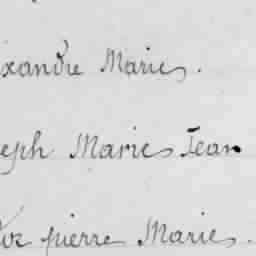 ixandre Maries.
seph Maries Jean
pierre Maries.